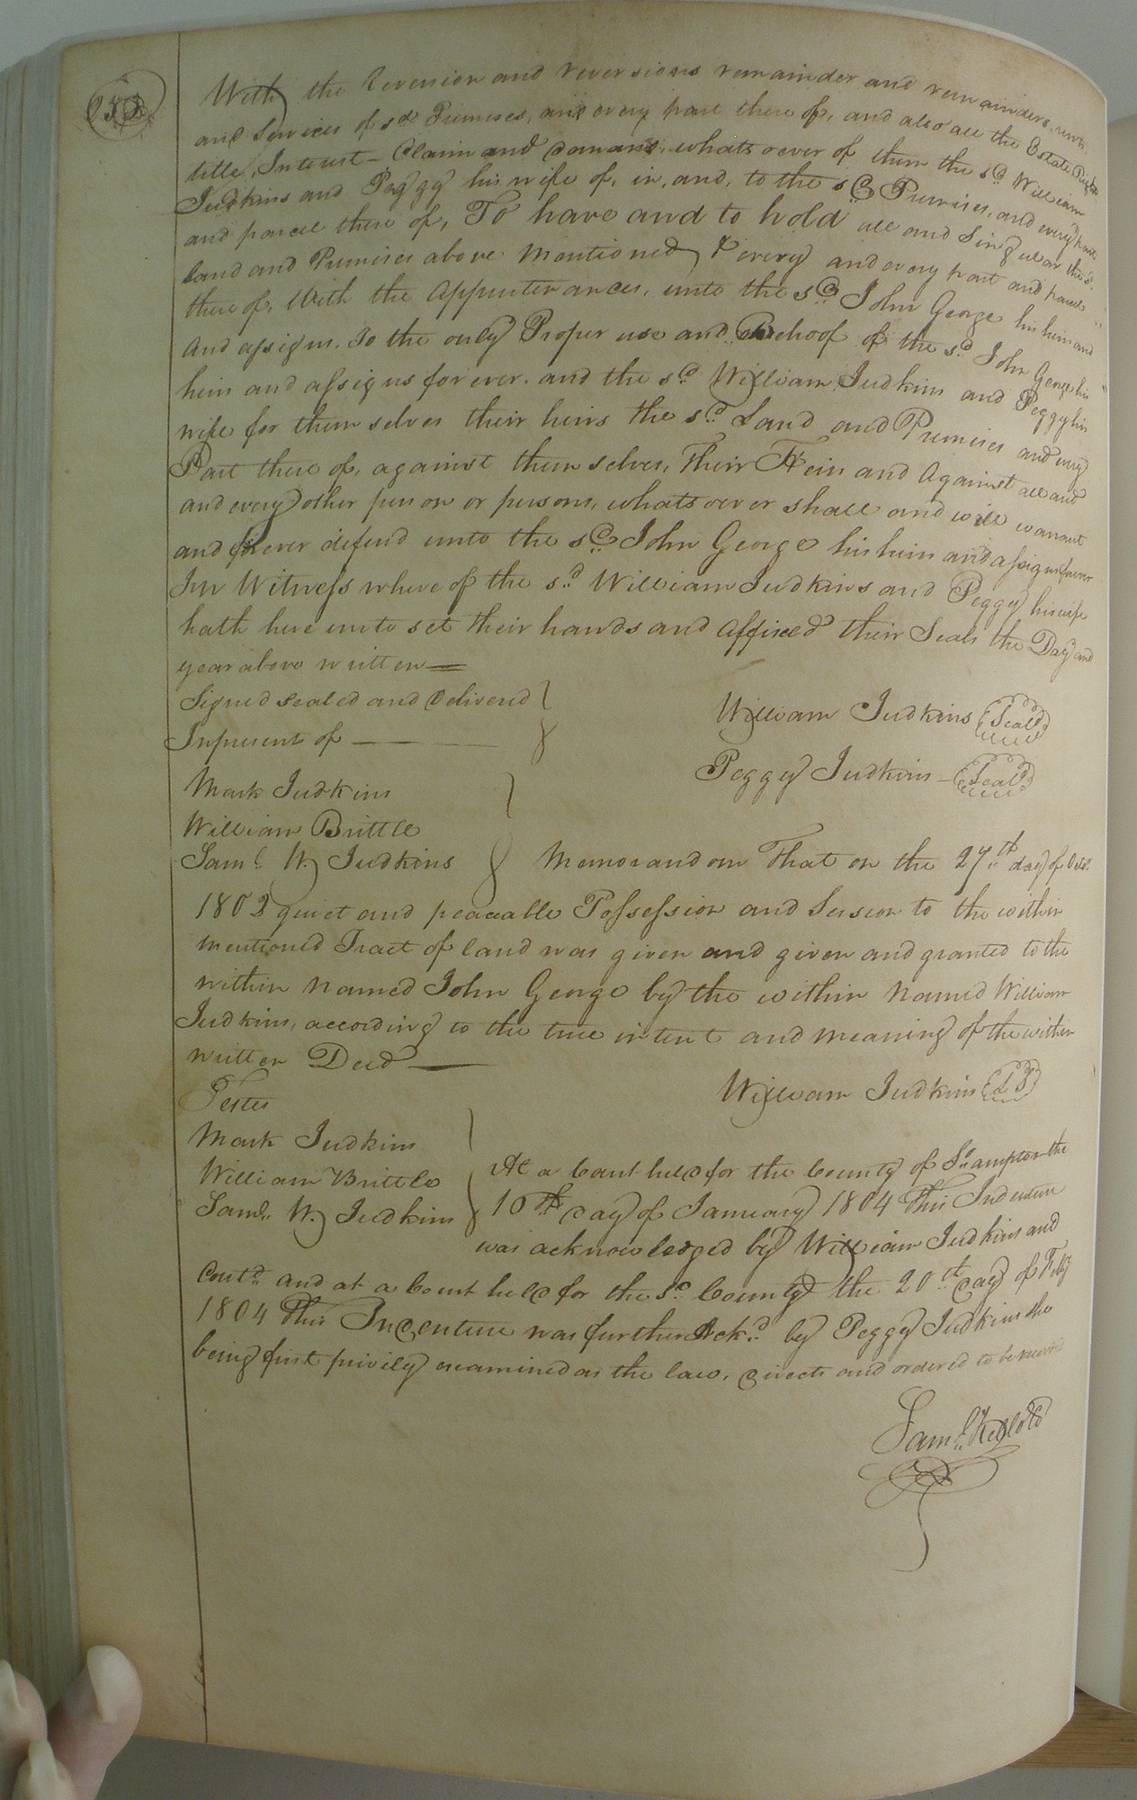 With the Reversion and reversions remainder and remainders, rents
and Services of sd. Premises, and every part there of, and also all the Estate Right
title, Interest - Claim and demand, whatsoever of them the sd. William
Judkins and Peggy his wife of, in, and, to the sd. Premises, and every part
and parcel there of, To have and to hold all and Singular the sd.
land and Premises above Mentioned & every and every part and parcel
there of, With the Appurtenances, unto the sd. John George his heirs and
And assigns. To the only Proper use and Behoof of the sd. John George his
heirs and assigns forever. and the sd. William Judkins and Peggy his
wife for themselves their heirs the sd. Land and Premises and every
Part there of, against themselves, Their Heirs and Against all and
and every other person or persons, whatsoever shall and will warrant
and forever defend unto the sd. John George his heirs and assigns forever
In Witness where of the sd. William Judkins and Peggy his wife
hath here unto set their hands and Affixed their Seals the Day and
year above written —
Signed sealed and delivered
In present of —
William Judkins Seal
Peggy Judkins — Seal
Mark Judkins
William Brittle
Saml. W. Judkins
Memorandom That on the 27th day of Octr.
1802 quiet and peacable Possession and Seision to the within
mentioned Tract of land was given and given and granted to the
within Named John George by the within Named William
Judkins, according to the true intent and meaning of the within
written Deed —
William Judkins LS
Testes
Mark Judkins
William Brittle
Saml. W. Judkins
At a Court held for the County of So.ampton the
16th day of January 1804 This Indenture
was acknowledged by William Judkins and
Contd. and at a Court held for the sd. County the 20th day of Feby
1804 This Indenture was further Ackd. by Peggy Judkins she
being first privily examined as the law, directs and ordered to be
Saml. Kello